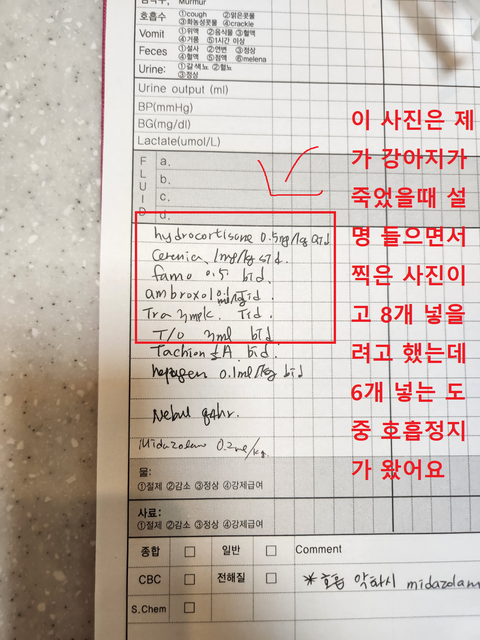 Murmur
호흡수 ①cough ②맑은콧물
③화농성콧물 ④crackle
Vomit ①위액 ②음식물 ③혈액
④거품 ⑤1시간 이상
Feces ①설사 ②연변 ③정상
④혈액 ⑤점액 ⑥melena
Urine: ①갈색뇨 ②혈뇨
③정상
Urine output (ml)
BP(mmHg)
BG(mg/dl)
Lactate(umol/L)
FLUID
a.
b.
c.
d.
hydrocortisone 0.5mg/kg
cerenia 1mg/kg sid.
famo 0.5 bid.
ambroxol
Tra
T/o bid
Tachion ½A bid.
hepagen 0.1ml/kg bid
Nebul q4hr.
Midazolam 0.2ml/kg
물:
①절제 ②감소 ③정상 ④강제급여
사료:
①절제 ②감소 ③정상 ④강제급여
종합 □ 일반 □ Comment
CBC □ 전해질 □ *호흡 악화시 midazolam
S.Chem □
이 사진은 제
가 강아지가
죽었을때 설
명 들으면서
찍은 사진이
고 8개 넣을
려고 했는데
6개 넣는 도
중 호흡정지
가 왔어요